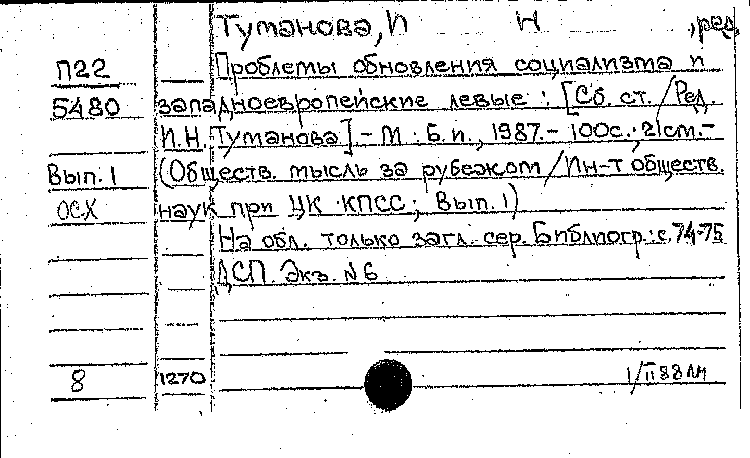 Туманова, И Н , ред.
П22 Проблемы обновления социализма и
5480 западноевропейские левые : [Сб. ст. / Ред.
И.Н. Туманова] - М : Б.и., 1987. - 100с.; 21 см. -
Вып. 1 (Обществ. мысль за рубежом / Ин-т обществ.
ОСХ наук при ЦК КПСС; Вып. 1)
На обл. только загл. сер. Библиогр.: с. 74-75
ДСП. Экз. №6
8 1270 1/II 88